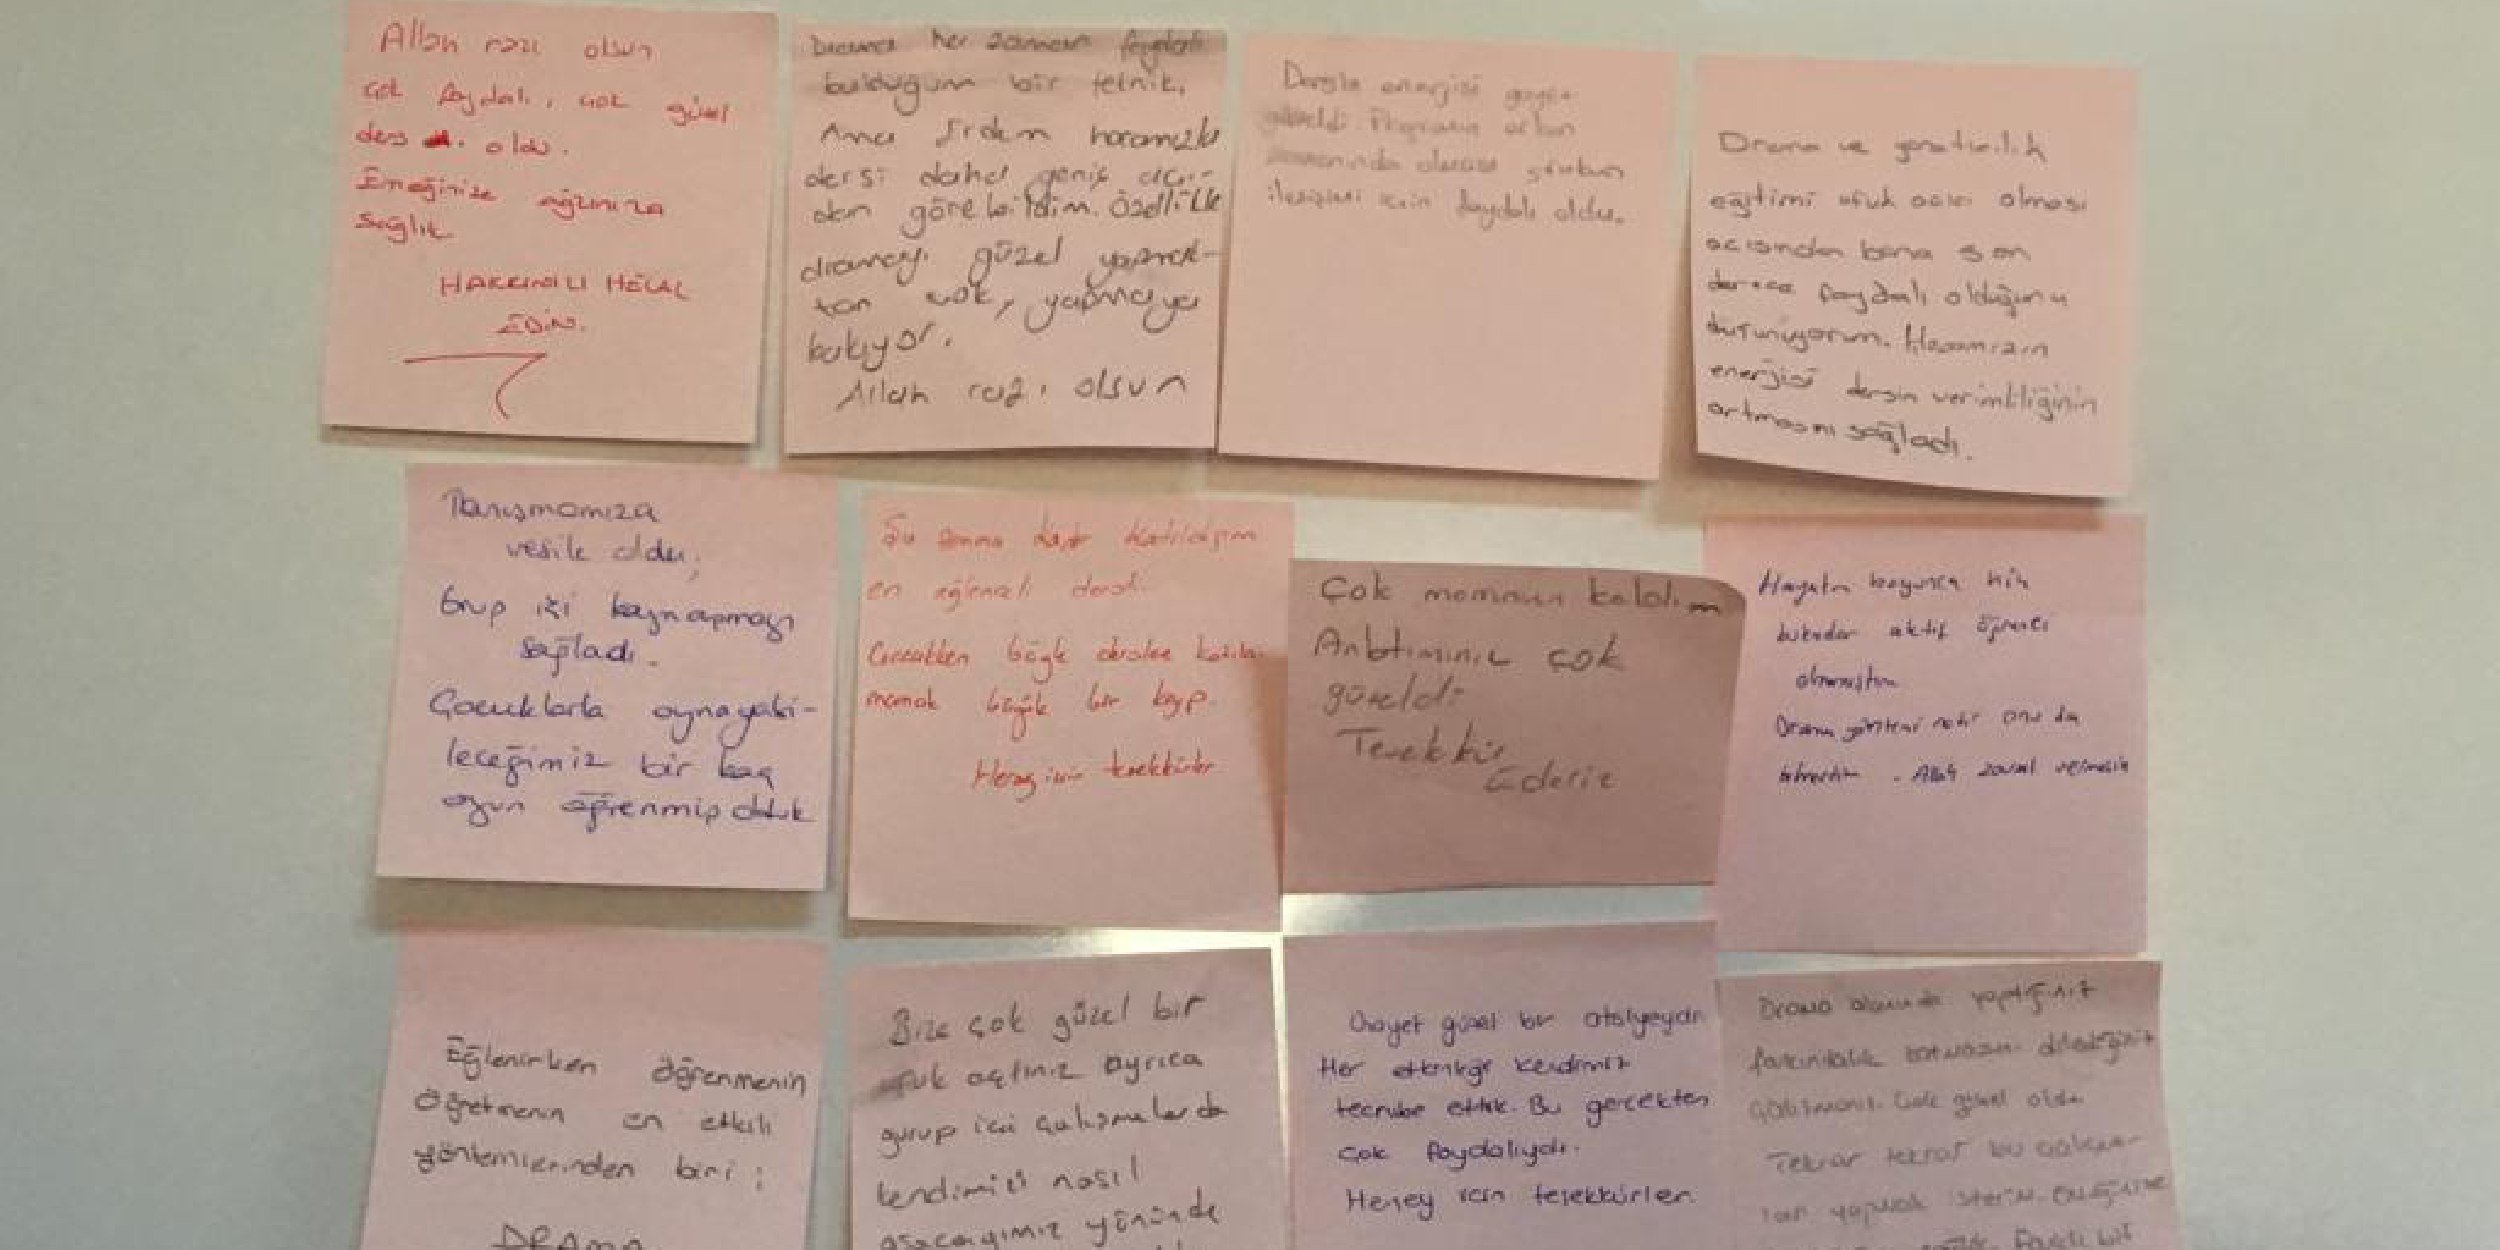 Allah razı olsun
çok faydalı, çok güzel
ders oldu.
Emeğinize ağzınıza
sağlık
HAKKINIZI HELAL
EDİN.
Drama her zaman faydalı
bulduğum bir teknik.
Ama Erdem hocamızla
dersi daha geniş açı-
dan görebildim. Özellikle
dramayı güzel yapmak-
tan çok, yapmaya
bakıyor.
Allah razı olsun
Dersin enerjisi gayet
güzeldi. Programın
zamanında olması grubun
iletişimi için faydalı oldu.
Drama ve yaratıcılık
eğitimi ufuk açıcı olması
açısından bana son
derece faydalı olduğunu
düşünüyorum. Hocamızın
enerjisi dersin verimliliğinin
artmasını sağladı.
Tanışmamıza
vesile oldu,
Grup içi kaynaşmayı
sağladı.
Çocuklarla oynayabi-
leceğimiz bir kaç
oyun öğrenmiş olduk
Şu anıma kadar katıldığım
en eğlenceli dersti.
böyle derslere katıla-
mamak büyük bir kayıp.
Herşey için teşekkürler
Çok memnun kaldım
Anlatımınız çok
güzeldi
Teşekkür
Ederiz
Hayatım boyunca hiç
bukadar aktif öğrenci
olmamıştım
Drama yöntemi nedir onu da
öğrendim. Allah zeval vermesin
Eğlenirken öğrenmenin
öğretmenin en etkili
yöntemlerinden biri;
DRAMA
Bize çok güzel bir
ufuk açtınız ayrıca
gurup içi çalışmalarda
kendimizi nasıl
aşacağımız yönünde
Gayet güzel bir atölyeydi
Her etkinliği kendimiz
tecrübe ettik. Bu gerçekten
çok faydalıydı.
Herşey için teşekkürler
Drama alanında yaptığınız
farkındalık
Çok güzel oldu
Tekrar tekrar bu çalışma-
ları yapmak isterim. Emeğinize